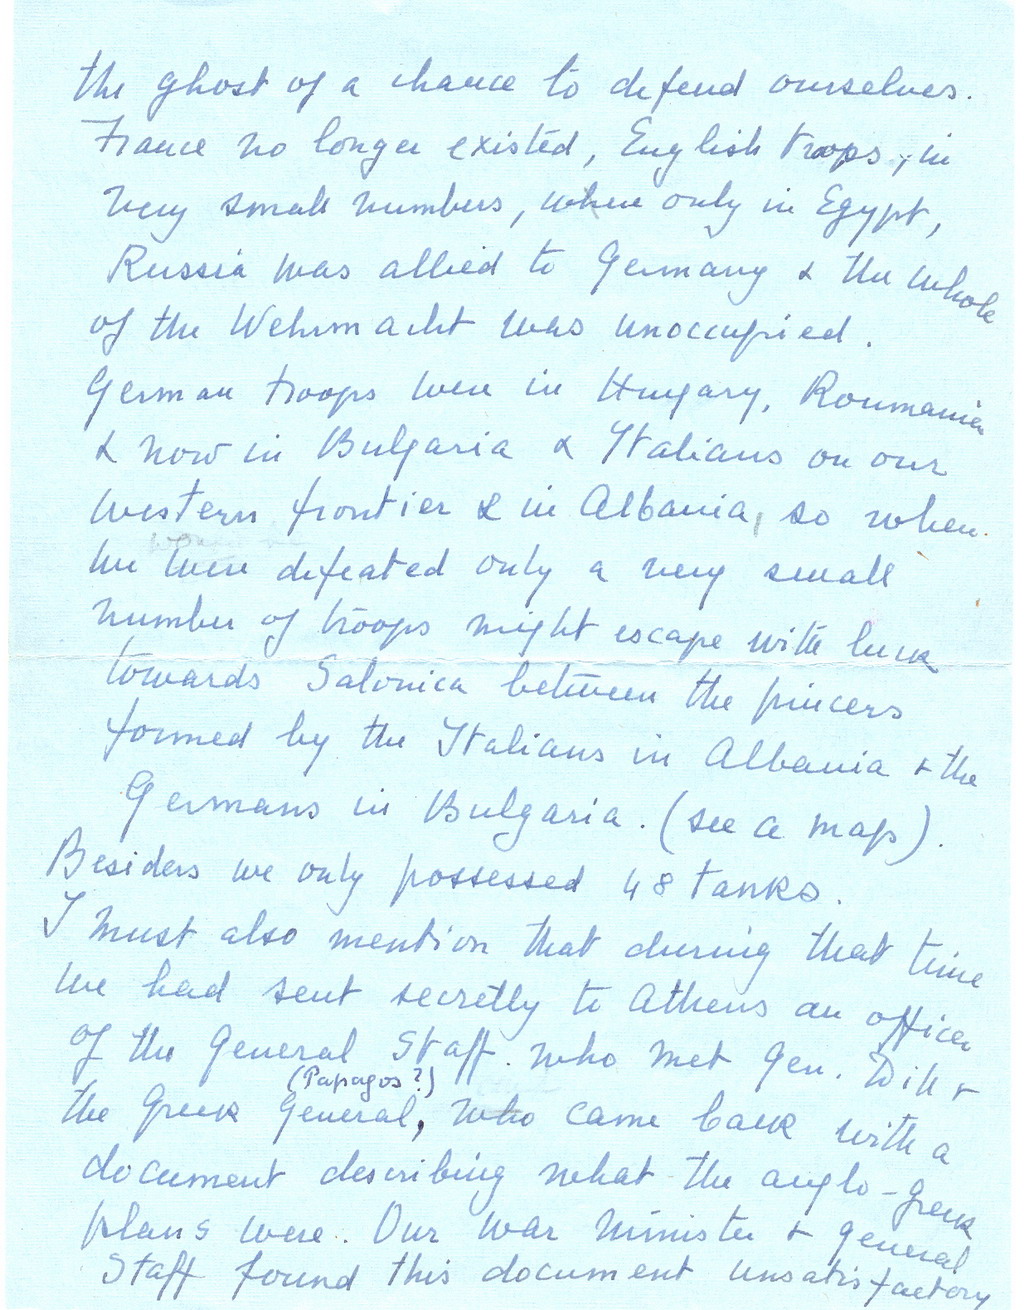 the ghost of a chance to defend ourselves.
France no longer existed, English troops, in
very small numbers, where only in Egypt,
Russia was allied to Germany & the whole
of the Wehrmacht was unoccupied.
German troops were in Hungary, Roumania
& now in Bulgaria & Italians on our
western frontier & in Albania, so when
we were defeated only a very small
number of troops might escape with luck
towards Salonica between the pincers
formed by the Italians in Albania & the
Germans in Bulgaria. (see a map).
Besides we only possessed 48 tanks.
I must also mention that during that time
we had sent secretly to Athens an officer
of the General Staff. who met Gen. Dill &
(Papagos?)
the Greek General, who came back with a
document describing what the anglo-Greek
plans were. Our War Minister & general
Staff found this document unsatisfactory